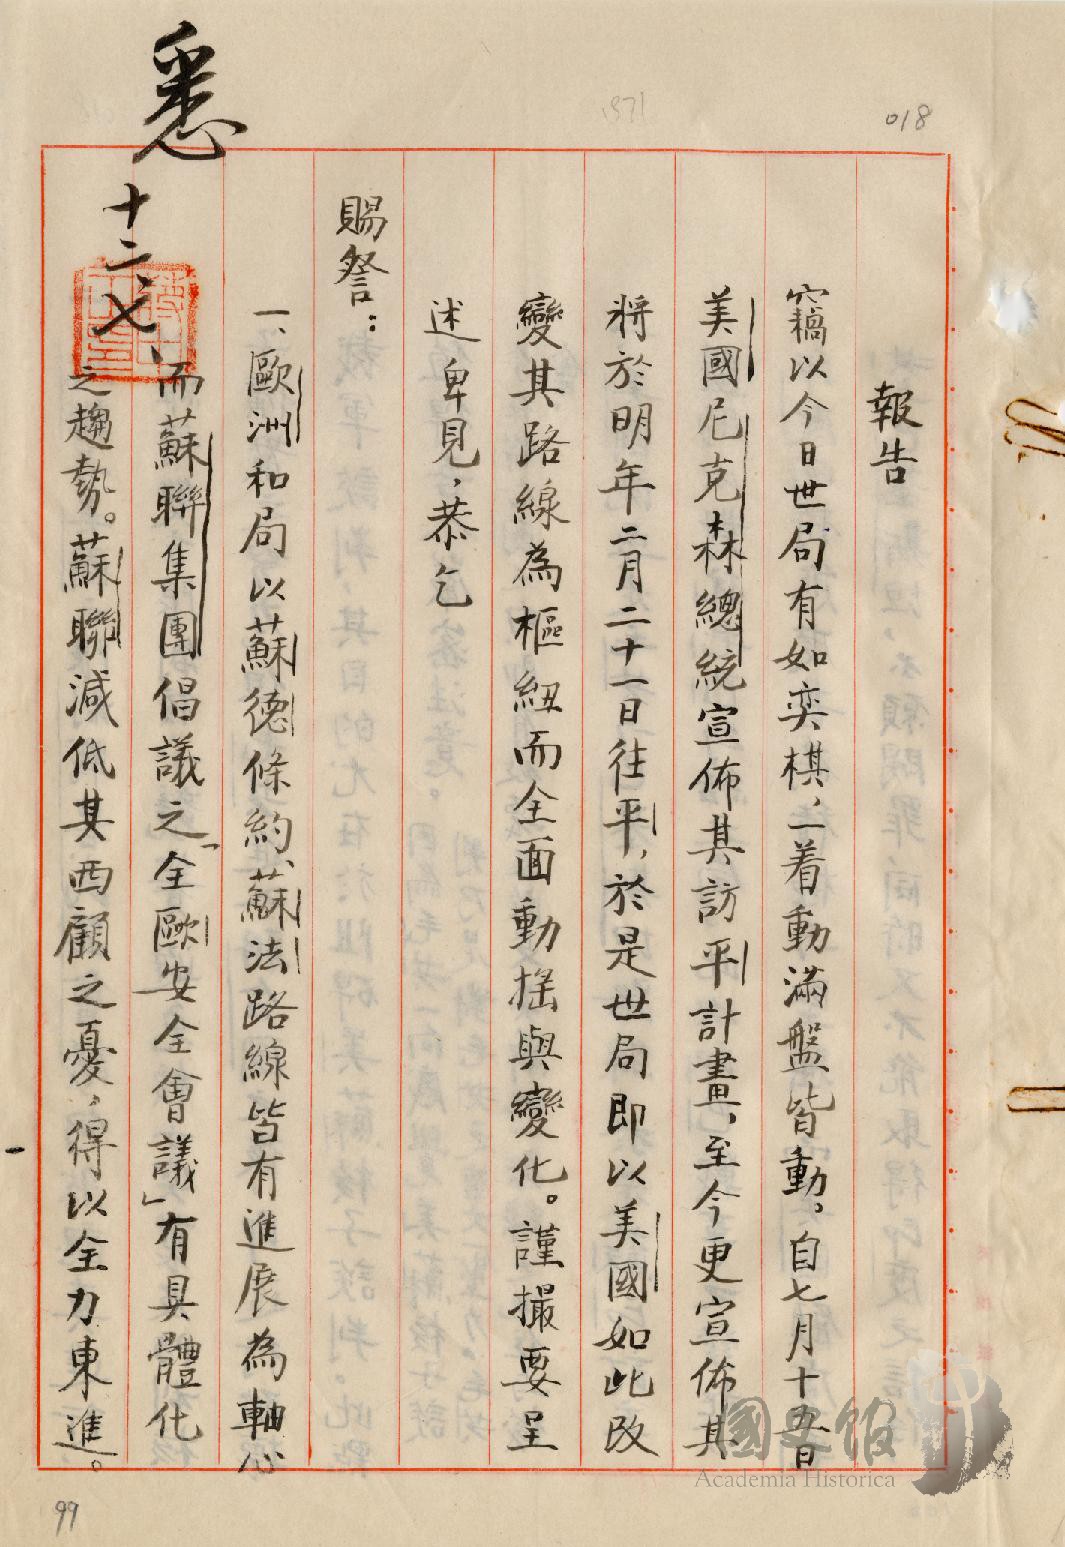 018
1371
報告
竊以今日世局有如奕棋，一着動滿盤皆動。自七月十五日
美國尼克森總統宣佈其訪平計畫，至今更宣佈其
將於明年二月二十一日往平，於是世局即以美國如此改
變其路線為樞紐而全面動搖與變化。謹撮要呈
述卑見，恭乞
賜詧：
一、歐洲和局以蘇德條約、蘇法路線皆有進展為軸心
而蘇聯集團倡議之「全歐安全會議」有具體化
之趨勢。蘇聯減低其西顧之憂，得以全力東進。
悉
十二、七、
99
國史館
Academia Historica